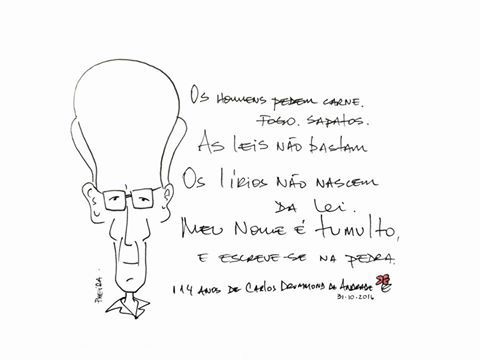 Os homens pedem carne.
Fogo. Sapatos.
As leis não bastam
Os lírios não nascem
da lei.
Meu nome é tumulto,
e escreve-se na pedra.
114 anos de Carlos Drummond de Andrade
31-10-2016